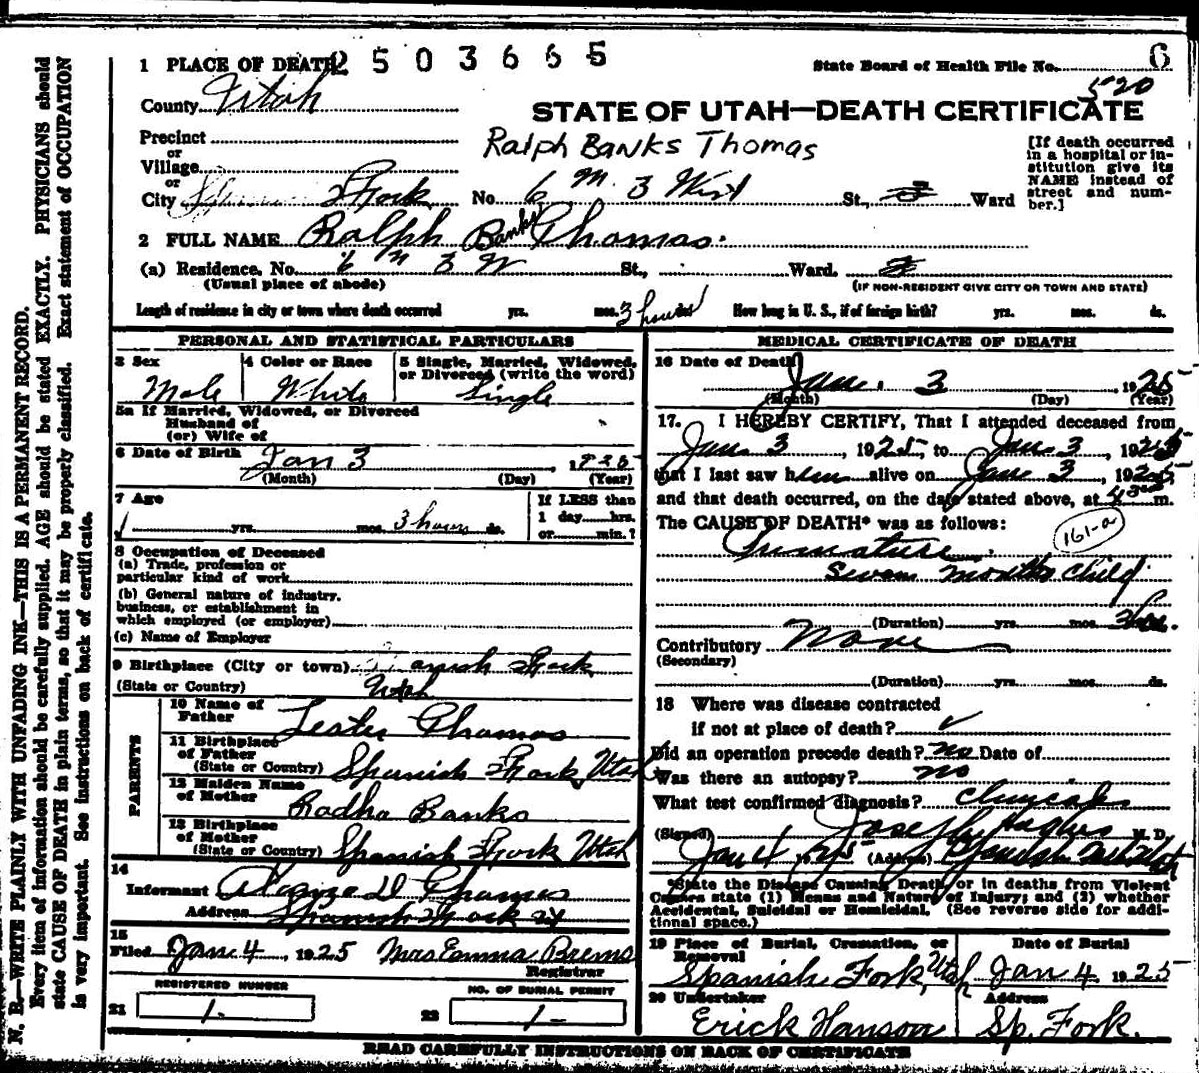 2503665
1 PLACE OF DEATH
State Board of Health File No. 6
520
County Utah
STATE OF UTAH—DEATH CERTIFICATE
Precinct
or
Village
or
City Fork
Ralph Banks Thomas
[If death occurred in a hospital or institution give its NAME instead of street and number.]
No. 6 M 3 West St., Ward
2 FULL NAME Ralph Banks Thomas.
(a) Residence. No. 6 M 3 W St., Ward.
(Usual place of abode)
(IF NON-RESIDENT GIVE CITY OR TOWN AND STATE)
Length of residence in city or town where death occurred yrs. mos. 3 hours ds. How long in U. S., if of foreign birth? yrs. mos. ds.
PERSONAL AND STATISTICAL PARTICULARS
3 Sex
Male
4 Color or Race
White
5 Single, Married, Widowed, or Divorced (write the word)
Single
5a If Married, Widowed, or Divorced
Husband of
(or) Wife of
6 Date of Birth Jan 3, 1925
(Month) (Day) (Year)
7 Age
yrs. mos. 3 hours ds.
If LESS than
1 day......hrs.
or......min.?
8 Occupation of Deceased
(a) Trade, profession or
particular kind of work
(b) General nature of industry,
business, or establishment in
which employed (or employer)
(c) Name of Employer
9 Birthplace (City or town) Spanish Fork
(State or Country) Utah
PARENTS
10 Name of Father Lester Thomas
11 Birthplace of Father
(State or Country) Spanish Fork, Utah
12 Maiden Name of Mother Radha Banks
13 Birthplace of Mother
(State or Country) Spanish Fork Utah
14
Informant D Thomas
Address Spanish Fork Ut
15
Filed Jan 4, 1925 Mrs Emma Brems
Registrar
REGISTERED NUMBER
21 1-
NO. OF BURIAL PERMIT
22 1-
MEDICAL CERTIFICATE OF DEATH
16 Date of Death
Jan. 3, 1925
(Month) (Day) (Year)
17. I HEREBY CERTIFY, That I attended deceased from
Jan 3, 1925, to Jan 3, 1925
that I last saw him alive on Jan 3, 1925
and that death occurred, on the date stated above, at 4 30 m.
The CAUSE OF DEATH* was as follows:
161-a
Premature
Seven months child
(Duration) yrs. mos. 3 hrs.
Contributory None
(Secondary)
(Duration) yrs. mos. ds.
18 Where was disease contracted
if not at place of death?
Did an operation precede death? no Date of
Was there an autopsy? no
What test confirmed diagnosis?
(Signed) Joseph Hughes M. D.
Jan 4, 1925 (Address) Spanish Fork Utah
*State the Disease Causing Death, or in deaths from Violent
Causes state (1) Means and Nature of Injury; and (2) whether
Accidental, Suicidal or Homicidal. (See reverse side for additional space.)
19 Place of Burial, Cremation, or Removal
Spanish Fork, Utah
Date of Burial
Jan 4 1925
20 Undertaker
Erick Hanson
Address
Sp. Fork.
READ CAREFULLY INSTRUCTIONS ON BACK OF CERTIFICATE
N. B.—WRITE PLAINLY WITH UNFADING INK—THIS IS A PERMANENT RECORD.
Every item of information should be carefully supplied. AGE should be stated EXACTLY. PHYSICIANS should
state CAUSE OF DEATH in plain terms, so that it may be properly classified. Exact statement of OCCUPATION
is very important. See instructions on back of certificate.